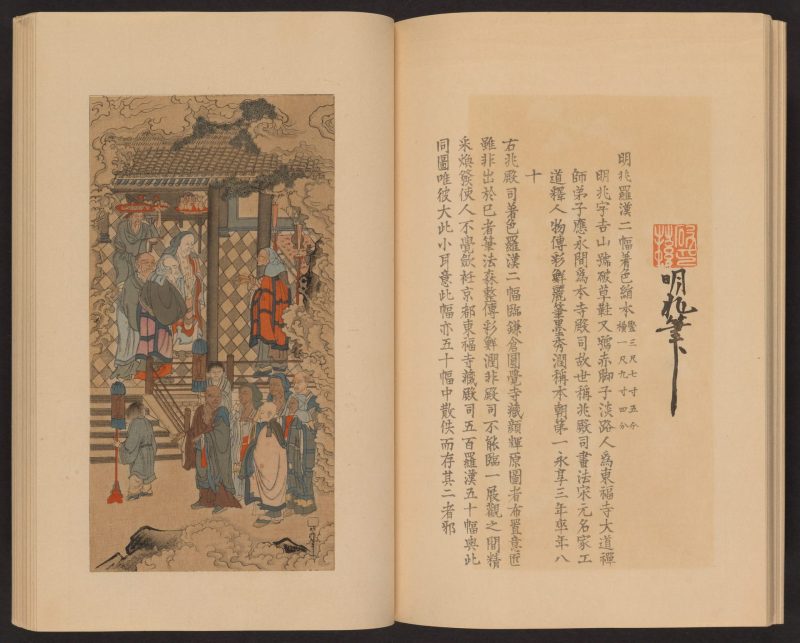 明兆筆
明兆羅漢二幅著色絹本
豎三尺七寸五分
橫一尺九寸四分
明兆字吉山號破草鞋又號赤脚子淡路人爲東福寺大道禪
師弟子應永間爲本寺殿司故世稱兆殿司畫法宋元名家工
道釋人物傅彩鮮麗筆墨秀潤稱本朝第一永享三年卒年八
十
右兆殿司著色羅漢二幅臨鎌倉圓覺寺藏顏輝原圖者布置意匠
雖非出於己者筆法森整傅彩鮮潤非殿司不能臨一展觀之間精
采煥發使人不覺歛衽京都東福寺藏殿司五百羅漢五十幅與此
同圖唯彼大此小耳意此幅亦五十幅中散佚而存其二者邪